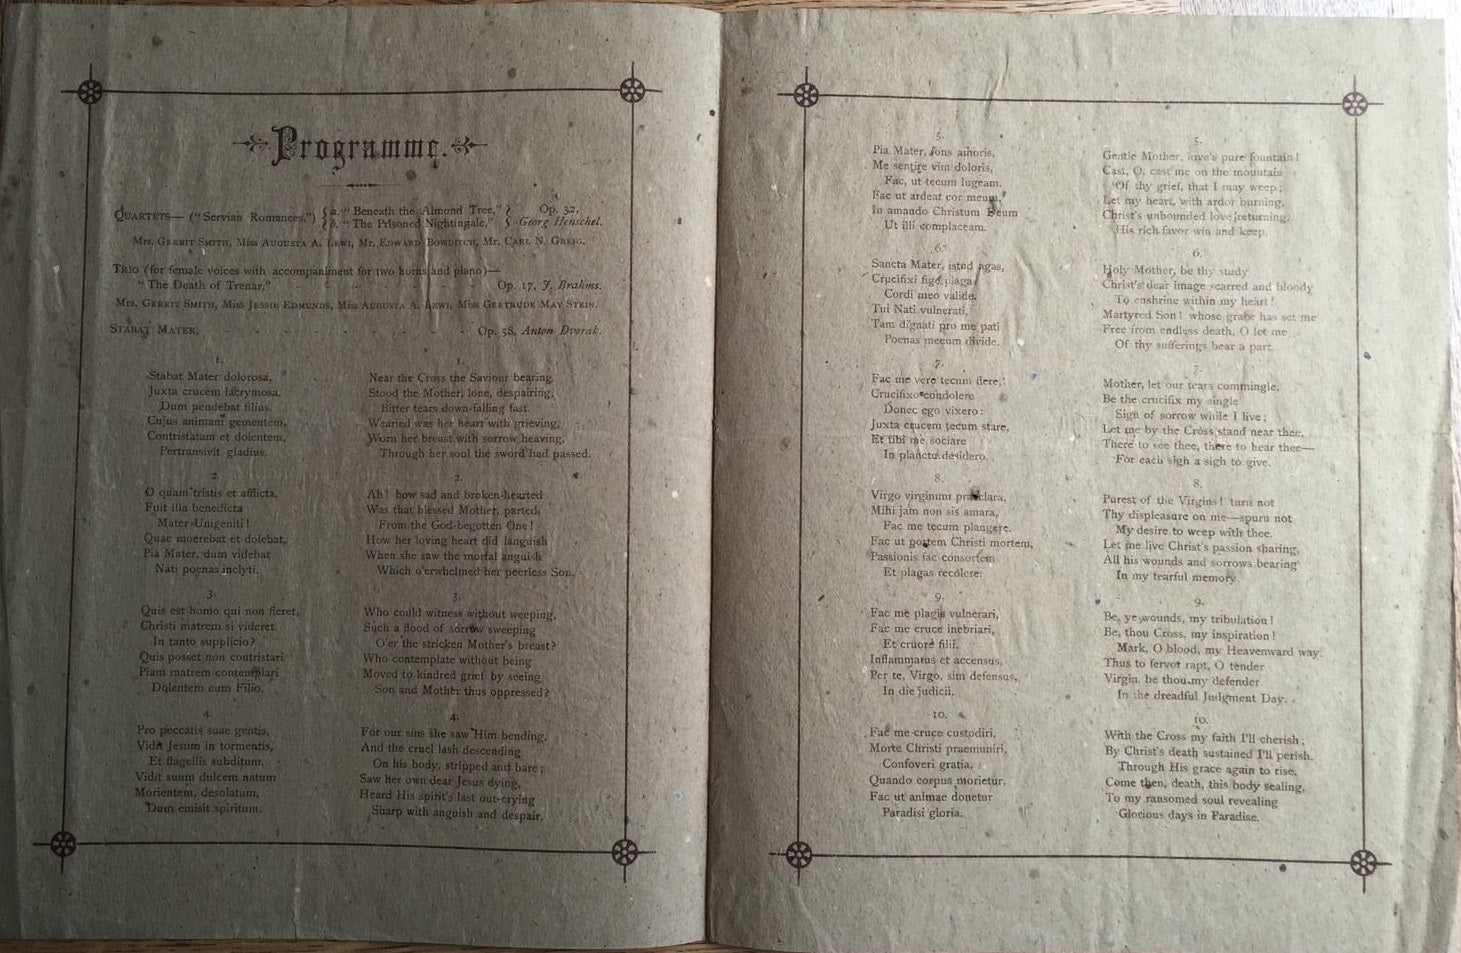 Programme.
QUARTETS— ("Servian Romances.") { a. "Beneath the Almond Tree," } Op. 32,
{ b. "The Prisoned Nightingale," } Georg Henschel.
MRS. GERRIT SMITH, MISS AUGUSTA A. LEWI, MR. EDWARD BOWDITCH, MR. CARL N. GREIG.
TRIO (for female voices with accompaniment for two horns and piano)—
"The Death of Trenar," - - - - - - Op. 17, J. Brahms.
MRS. GERRIT SMITH, MISS JESSIE EDMUNDS, MISS AUGUSTA A. LEWI, MISS GERTRUDE MAY STEIN.
STABAT MATER, - - - - - - - - - Op. 58, Anton Dvorak.
1.
Stabat Mater dolorosa,
Juxta crucem lacrymosa,
Dum pendebat filius.
Cujus animam gementem,
Contristatam et dolentem,
Pertransivit gladius.
2.
O quam tristis et afflicta,
Fuit illa benedicta
Mater Unigeniti!
Quae moerebat et dolebat,
Pia Mater, dum videbat
Nati poenas inclyti.
3.
Quis est homo qui non fleret,
Christi matrem si videret
In tanto supplicio?
Quis posset non contristari
Piam matrem contemplari
Dolentem cum Filio.
4.
Pro peccatis suae gentis,
Vidit Jesum in tormentis,
Et flagellis subditum,
Vidit suum dulcem natum
Morientem, desolatum,
Dum emisit spiritum.
1.
Near the Cross the Saviour bearing,
Stood the Mother, lone, despairing,
Bitter tears down-falling fast.
Wearied was her heart with grieving,
Worn her breast with sorrow heaving,
Through her soul the sword had passed.
2.
Ah! how sad and broken-hearted
Was that blessed Mother, parted
From the God-begotten One!
How her loving heart did languish
When she saw the mortal anguish
Which o'erwhelmed her peerless Son.
3.
Who could witness without weeping,
Such a flood of sorrow sweeping
O'er the stricken Mother's breast?
Who contemplate without being
Moved to kindred grief by seeing
Son and Mother thus oppressed?
4.
For our sins she saw Him bending,
And the cruel lash descending
On his body, stripped and bare;
Saw her own dear Jesus dying,
Heard His spirit's last out-crying
Sharp with anguish and despair.
5.
Pia Mater, fons amoris,
Me sentire vim doloris,
Fac, ut tecum lugeam.
Fac ut ardeat cor meum,
In amando Christum Deum
Ut illi complaceam.
6.
Sancta Mater, istud agas,
Crucifixi fige plagas
Cordi meo valide.
Tui Nati vulnerati,
Tam dignati pro me pati
Poenas mecum divide.
7.
Fac me vere tecum flere,
Crucifixo condolere
Donec ego vixero:
Juxta crucem tecum stare,
Et tibi me sociare
In planctu desidero.
8.
Virgo virginum praeclara,
Mihi jam non sis amara,
Fac me tecum plangere.
Fac ut portem Christi mortem,
Passionis fac consortem
Et plagas recolere.
9.
Fac me plagis vulnerari,
Fac me cruce inebriari,
Et cruore filii.
Inflammatus et accensus,
Per te, Virgo, sim defensus,
In die judicii.
10.
Fac me cruce custodiri,
Morte Christi praemuniri,
Confoveri gratia.
Quando corpus morietur,
Fac ut animae donetur
Paradisi gloria.
5.
Gentle Mother, love's pure fountain!
Cast, O, cast me on the mountain
Of thy grief, that I may weep;
Let my heart, with ardor burning,
Christ's unbounded love returning,
His rich favor win and keep.
6.
Holy Mother, be thy study
Christ's dear image scarred and bloody
To enshrine within my heart!
Martyred Son! whose grace has set me
Free from endless death, O let me
Of thy sufferings bear a part.
7.
Mother, let our tears commingle,
Be the crucifix my single
Sign of sorrow while I live;
Let me by the Cross stand near thee,
There to see thee, there to hear thee—
For each sigh a sigh to give.
8.
Purest of the Virgins! turn not
Thy displeasure on me—spurn not
My desire to weep with thee.
Let me live Christ's passion sharing,
All his wounds and sorrows bearing
In my tearful memory.
9.
Be, ye wounds, my tribulation!
Be, thou Cross, my inspiration!
Mark, O blood, my Heavenward way.
Thus to fervor rapt, O tender
Virgin, be thou my defender
In the dreadful Judgment Day.
10.
With the Cross my faith I'll cherish;
By Christ's death sustained I'll perish,
Through His grace again to rise.
Come then, death, this body sealing,
To my ransomed soul revealing
Glorious days in Paradise.